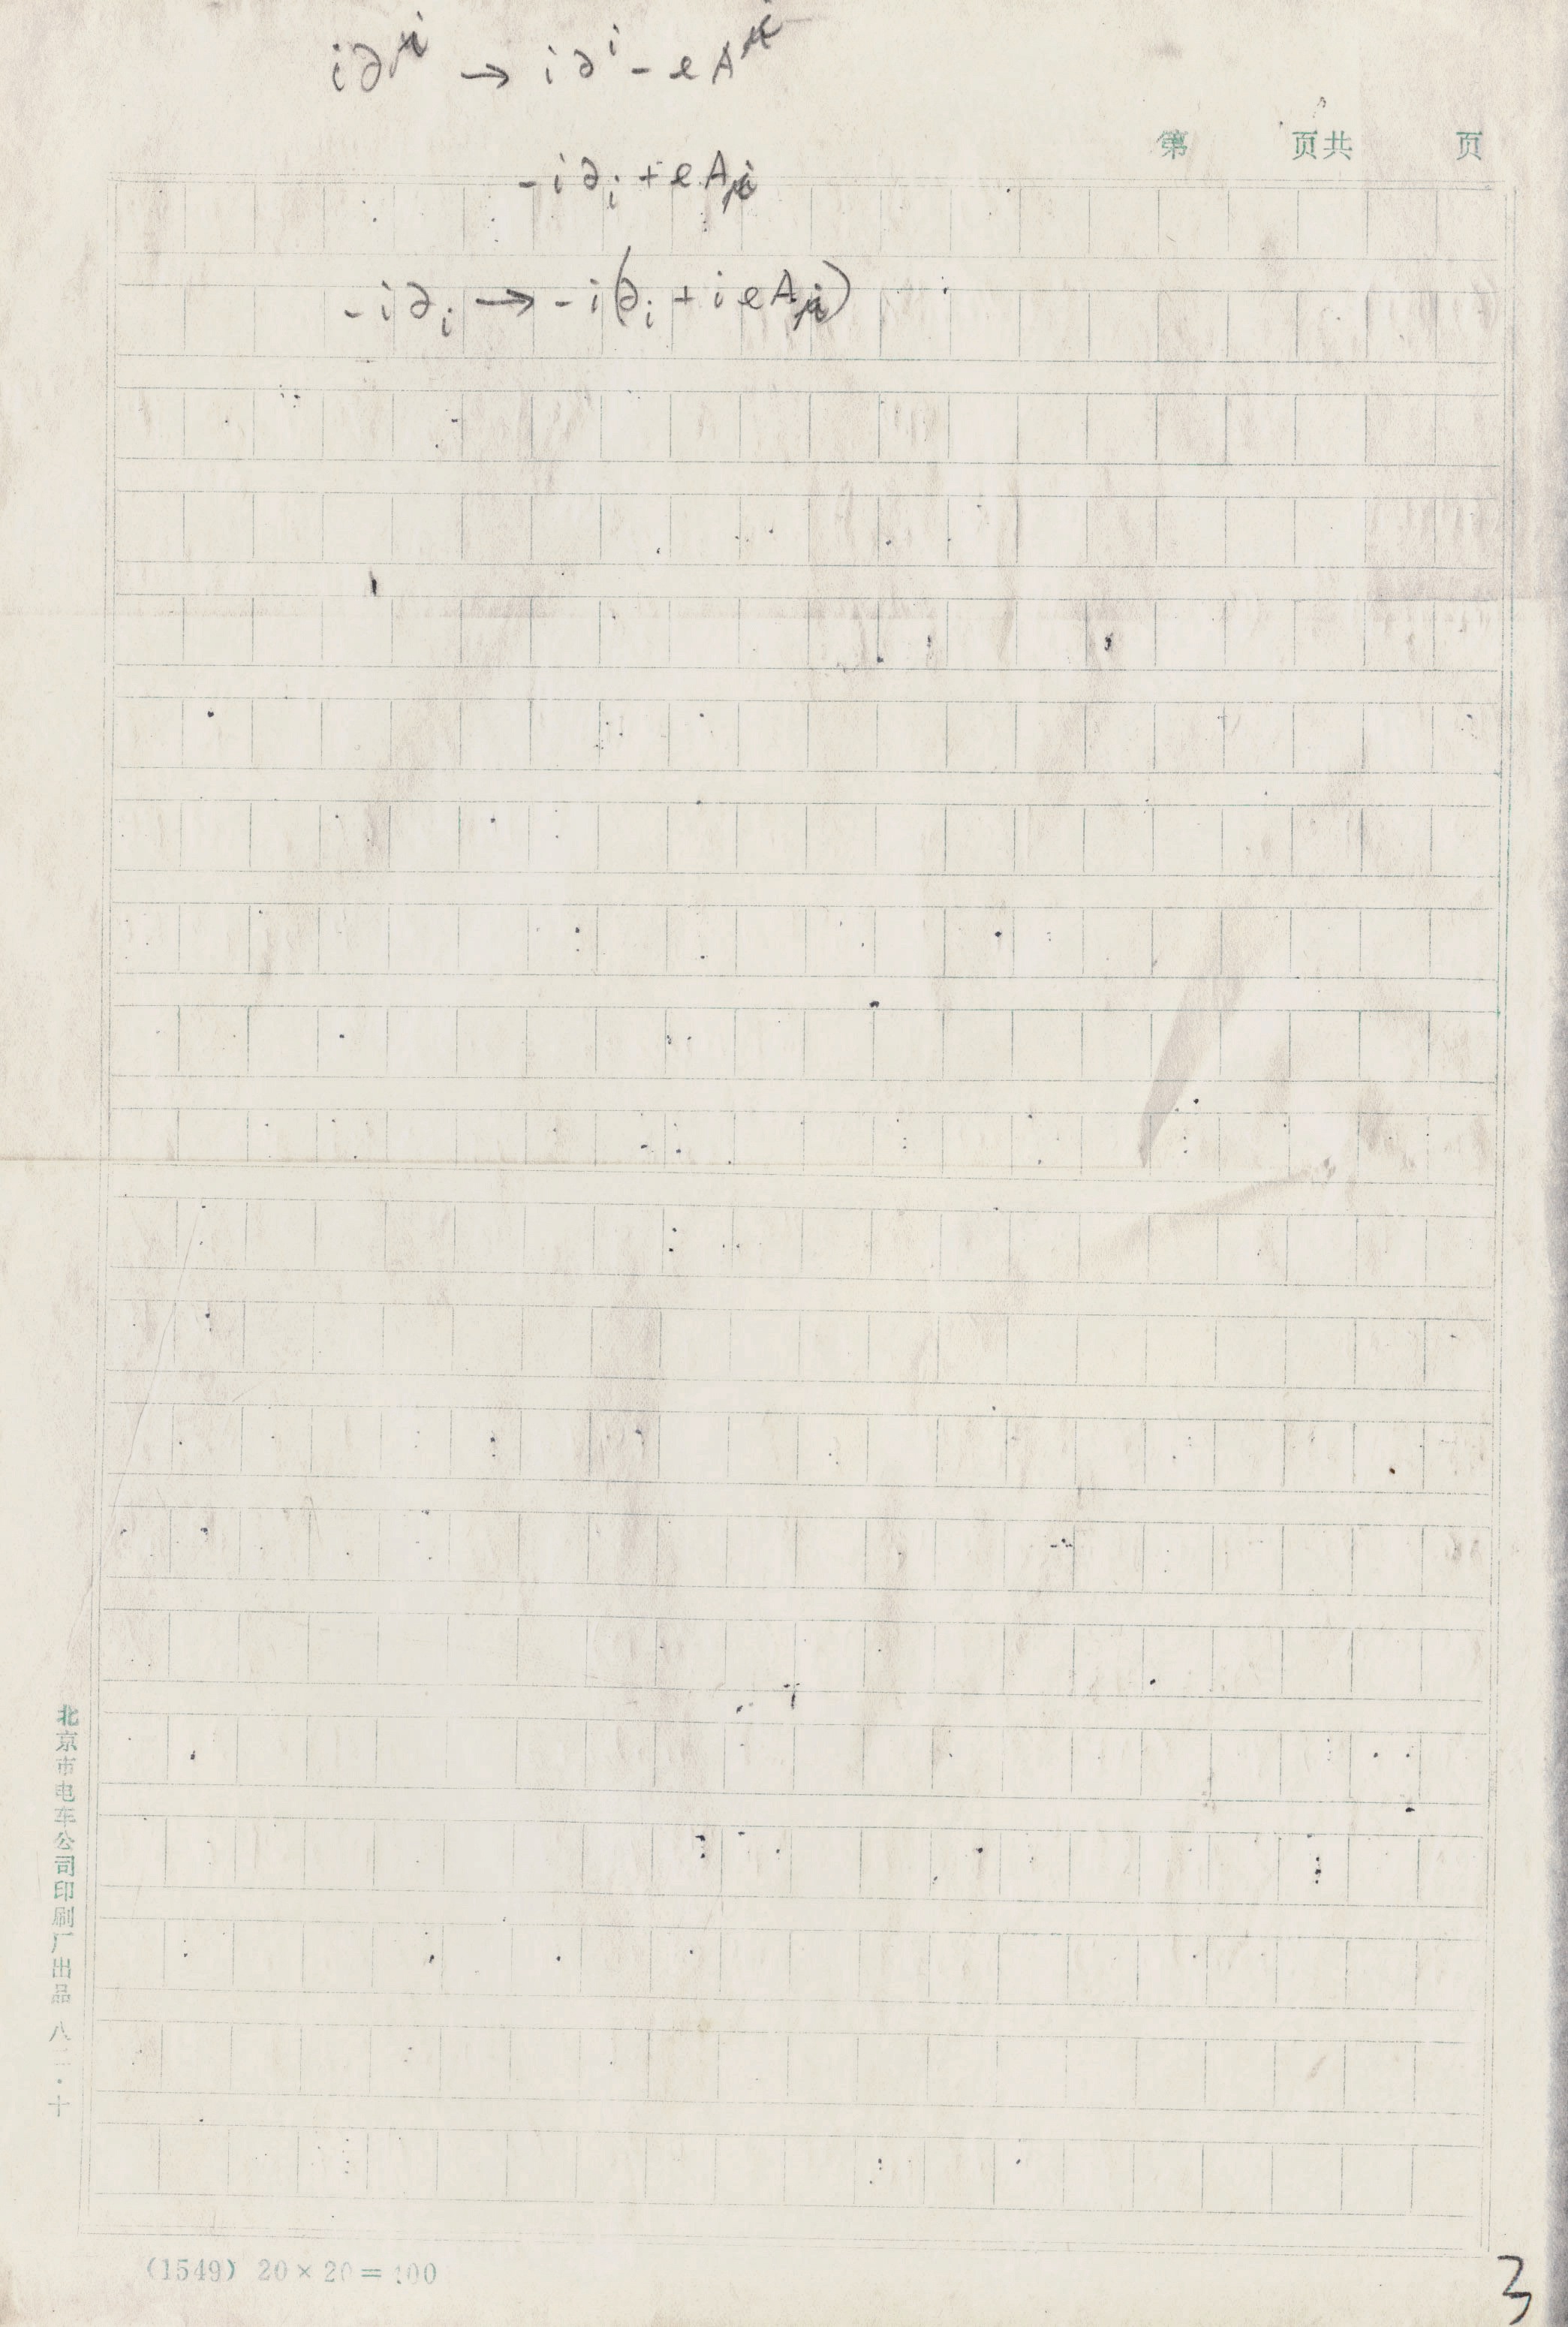 i∂^i → i∂^i - eA^i
第 页共 页
-i∂_i + eA_i
-i∂_i → -i(∂_i + ieA_i)
北京市电车公司印刷厂出品 八二·十
(1549) 20×20=400
3